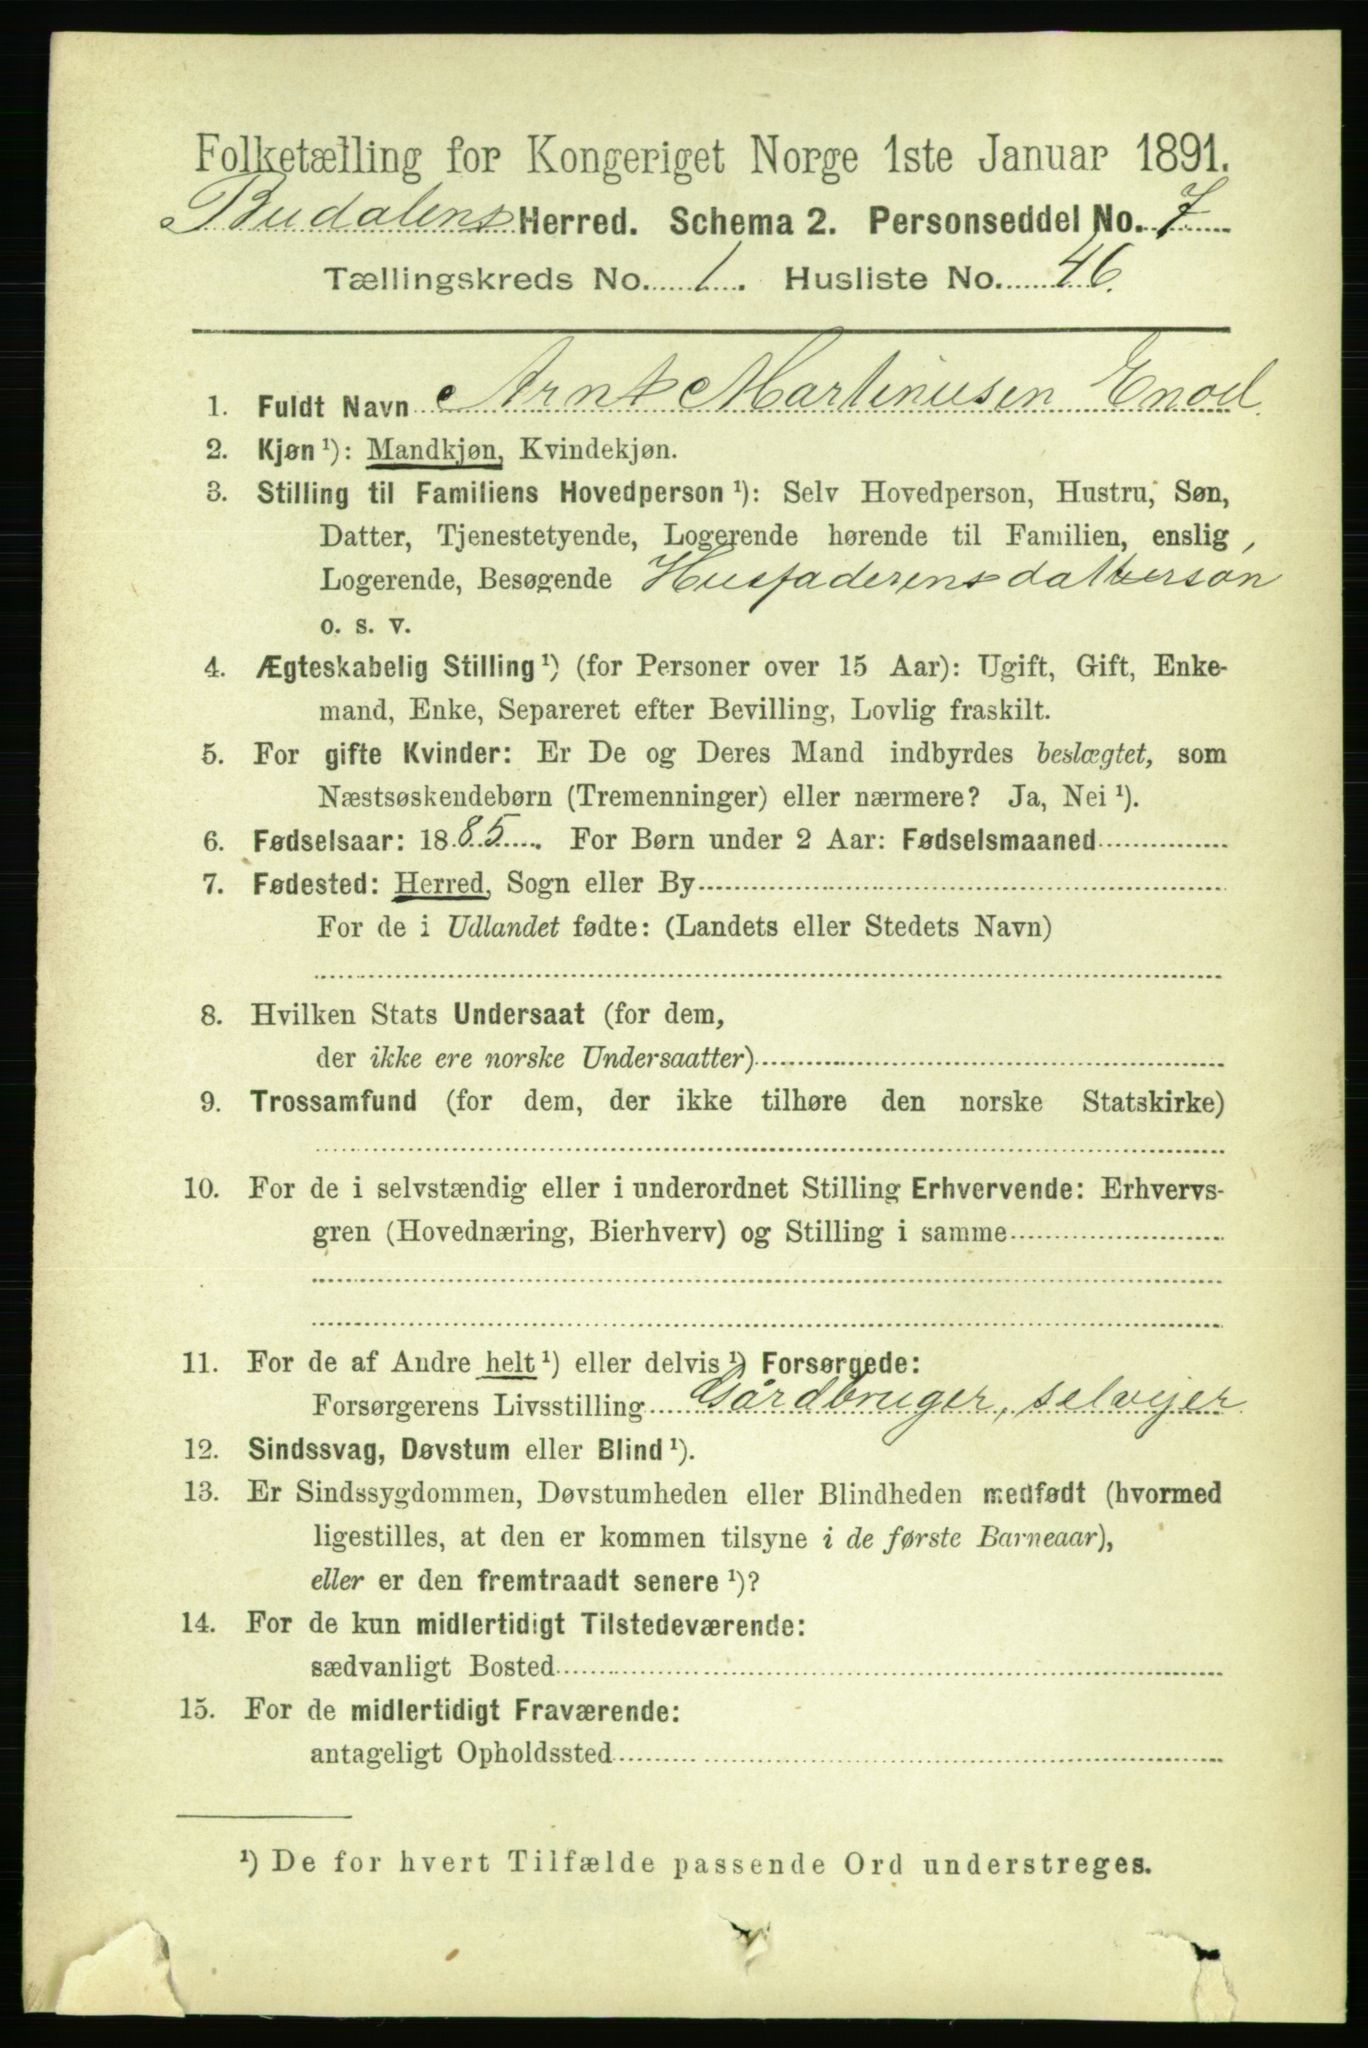 Folketælling for Kongeriget Norge 1ste Januar 1891.
Budalens Herred. Schema 2. Personseddel No. 7
Tællingskreds No. 1. Husliste No. 46.
1. Fuldt Navn Arnt Martiniusen Enod
2. Kjøn ¹): Mandkjøn, Kvindekjøn.
3. Stilling til Familiens Hovedperson ¹): Selv Hovedperson, Hustru, Søn,
Datter, Tjenestetyende, Logerende hørende til Familien, enslig
Logerende, Besøgende Husfaderens dattersøn
o. s. v.
4. Ægteskabelig Stilling ¹) (for Personer over 15 Aar): Ugift, Gift, Enke-
mand, Enke, Separeret efter Bevilling, Lovlig fraskilt.
5. For gifte Kvinder: Er De og Deres Mand indbyrdes beslægtet, som
Næstsøskendebørn (Tremenninger) eller nærmere? Ja, Nei ¹).
6. Fødselsaar: 1885. For Børn under 2 Aar: Fødselsmaaned
7. Fødested: Herred, Sogn eller By
For de i Udlandet fødte: (Landets eller Stedets Navn)
8. Hvilken Stats Undersaat (for dem,
der ikke ere norske Undersaatter)
9. Trossamfund (for dem, der ikke tilhøre den norske Statskirke)
10. For de i selvstændig eller i underordnet Stilling Erhvervende: Erhvervs-
gren (Hovednæring, Bierhverv) og Stilling i samme
11. For de af Andre helt ¹) eller delvis ¹) Forsørgede:
Forsørgerens Livsstilling Gårdbruger, selvejer
12. Sindssvag, Døvstum eller Blind ¹).
13. Er Sindssygdommen, Døvstumheden eller Blindheden medfødt (hvormed
ligestilles, at den er kommen tilsyne i de første Barneaar),
eller er den fremtraadt senere ¹)?
14. For de kun midlertidigt Tilstedeværende:
sædvanligt Bosted
15. For de midlertidigt Fraværende:
antageligt Opholdssted
¹) De for hvert Tilfælde passende Ord understreges.